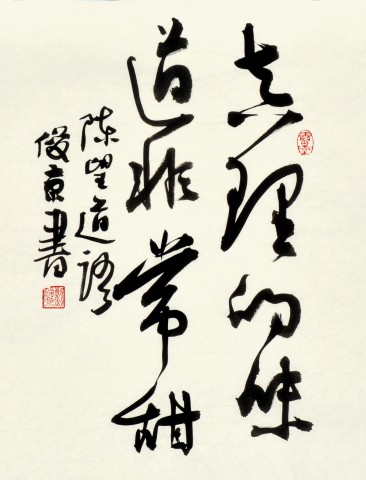 真理的味
道非常甜
陈望道语
俊京书